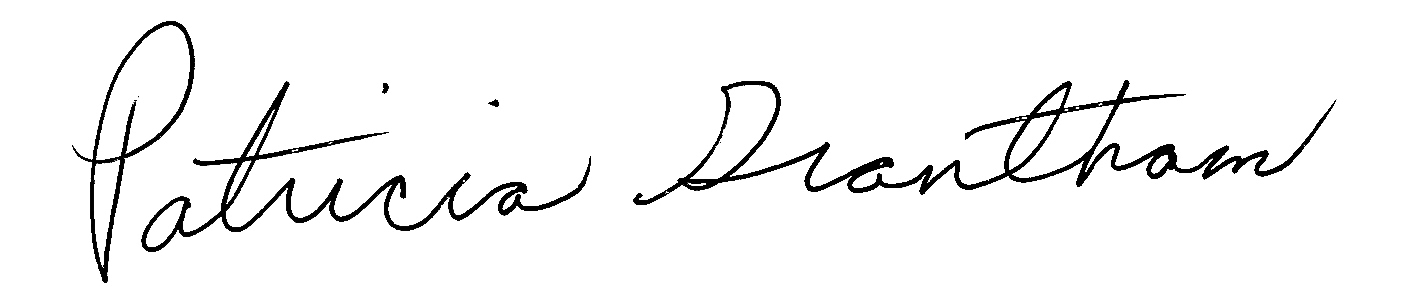 Patricia Grantham